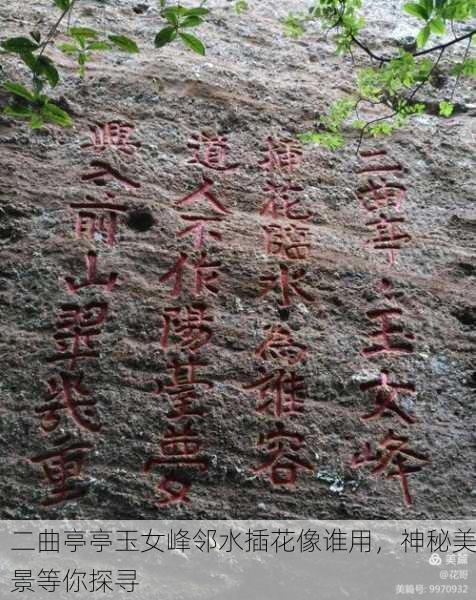 二曲亭〻玉女峰
插花臨水為誰容
道人不作陽臺夢
興入前山翠幾重
二曲亭亭玉女峰邻水插花像谁用，神秘美
景等你探寻
美篇
@花哥
美篇号: 9970932